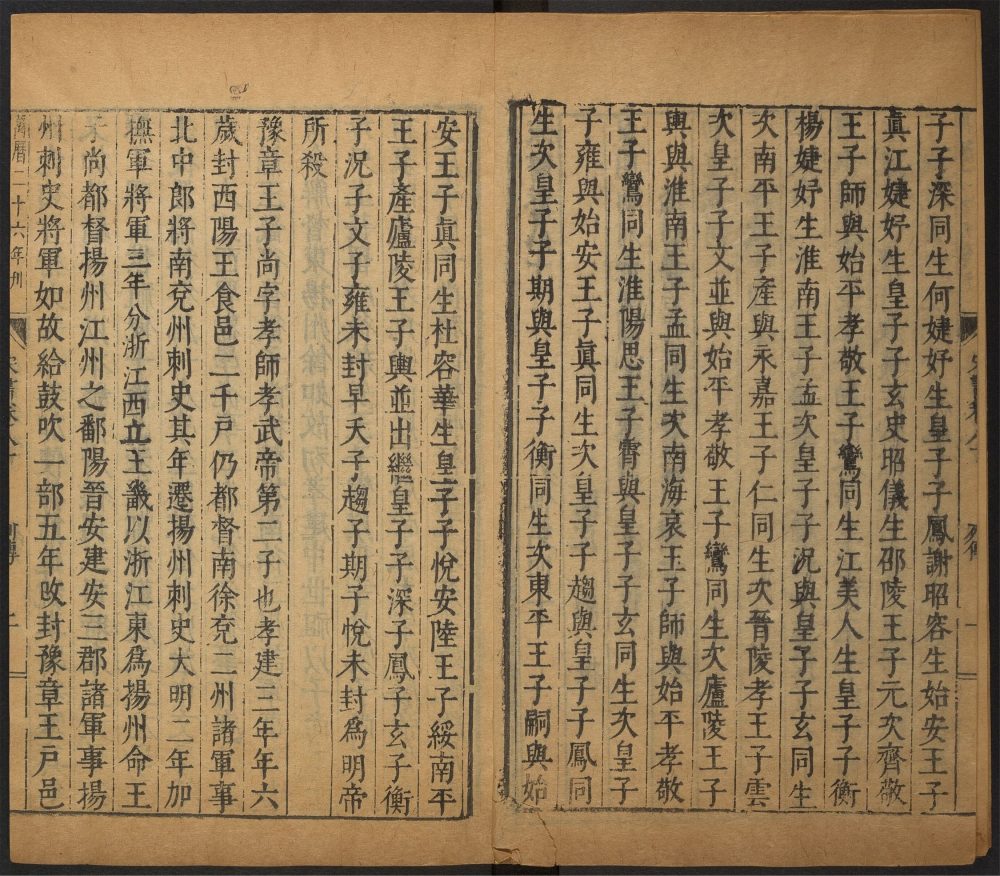 子子深同生何婕妤生皇子子鳳謝昭容生始安王子
眞江婕妤生皇子子玄史昭儀生邵陵王子元次齊敬
王子師與始平孝敬王子鸞同生江美人生皇子子衡
楊婕妤生淮南王子孟次皇子子況與皇子子玄同生
次南平王子產與永嘉王子仁同生次晉陵孝王子雲
次皇子子文並與始平孝敬王子鸞同生次廬陵王子
輿與淮南王子孟同生次南海哀王子師與始平孝敬
王子鸞同生淮陽思王子霄與皇子子玄同生次皇子
子雍與始安王子眞同生次皇子子趨與皇子子鳳同
生次皇子子期與皇子子衡同生次東平王子嗣與始
安王子眞同生杜容華生皇子子悅安陸王子綏南平
王子產廬陵王子輿並出繼皇子子深子鳳子玄子衡
子況子文子雍未封早夭子趨子期子悅未封爲明帝
所殺
豫章王子尚字孝師孝武帝第二子也孝建三年年六
歲封西陽王食邑二千戶仍都督南徐兖二州諸軍事
北中郎將南兖州刺史其年遷揚州刺史大明二年加
撫軍將軍三年分浙江西立王畿以浙江東爲揚州命王
子尚都督揚州江州之鄱陽晉安建安三郡諸軍事揚
州刺史將軍如故給鼓吹一部五年改封豫章王戶邑
萬曆二十六年刊